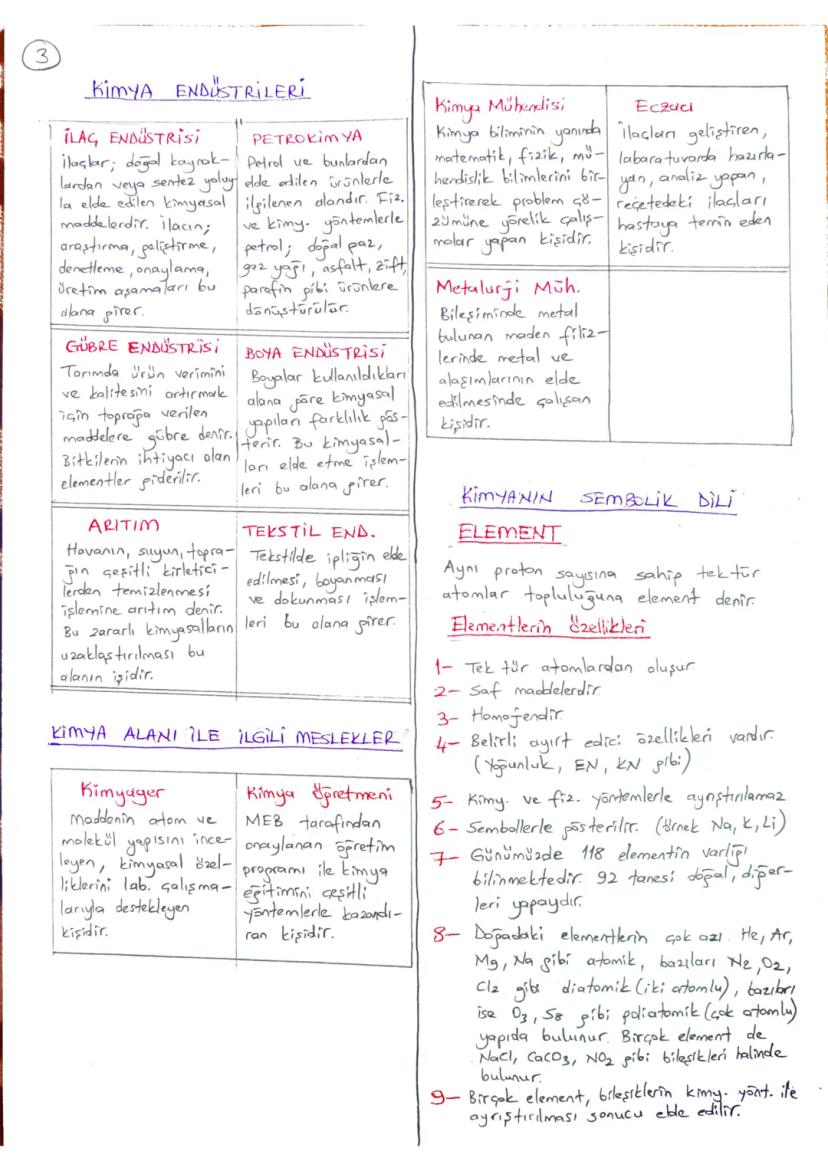 3
KİMYA ENDÜSTRİLERİ
İLAÇ ENDÜSTRİSİ
ilaçlar; doğal kaynak-
lardan veya sentez yoluy
la elde edilen kimyasal
maddelerdir. ilacın;
araştırma, geliştirme,
denetleme, onaylama,
üretim aşamaları bu
alana girer.
PETROKİMYA
Petrol ve bunlardan
elde edilen ürünlerle
ilgilenen alandır. Fiz.
ve kimy. yöntemlerle
petrol; doğal gaz,
gaz yağı, asfalt, zift,
parafin gibi ürünlere
dönüştürülür.
GÜBRE ENDÜSTRİSİ
Tarımda ürün verimini
ve kalitesini artırmak
için toprağa verilen
maddelere gübre denir.
Bitkilerin ihtiyacı olan
elementler giderilir.
BOYA ENDÜSTRİSİ
Boyalar kullanıldıkları
alana göre kimyasal
yapıları farklılık gös-
terir. Bu kimyasal-
ları elde etme işlem-
leri bu alana girer.
ARITIM
Havanın, suyun, topra-
ğın çeşitli kirletici-
lerden temizlenmesi
işlemine arıtım denir.
Bu zararlı kimyasalların
uzaklaştırılması bu
alanın işidir.
TEKSTİL END.
Tekstilde ipliğin elde
edilmesi, boyanması
ve dokunması işlem-
leri bu alana girer.
KİMYA ALANI İLE İLGİLİ MESLEKLER
Kimyager
Maddenin atom ve
molekül yapısını ince-
leyen, kimyasal özel-
liklerini lab. çalışma-
larıyla destekleyen
kişidir.
Kimya Öğretmeni
MEB tarafından
onaylanan öğretim
programı ile kimya
eğitimini çeşitli
yöntemlerle kazandı-
ran kişidir.
Kimya Mühendisi
Kimya biliminin yanında
matematik, fizik, mü-
hendislik bilimlerini bir-
leştirerek problem çö-
zümüne yönelik çalış-
malar yapan kişidir.
Eczacı
ilaçları geliştiren,
labaratuvarda hazırla-
yan, analiz yapan,
reçetedeki ilaçları
hastaya temin eden
kişidir.
Metalurji Müh.
Bileşiminde metal
bulunan maden filiz-
lerinde metal ve
alaşımlarının elde
edilmesinde çalışan
kişidir.
KİMYANIN SEMBOLİK DİLİ
ELEMENT
Aynı proton sayısına sahip tek tür
atomlar topluluğuna element denir.
Elementlerin özellikleri
1- Tek tür atomlardan oluşur
2- Saf maddelerdir.
3- Homojendir.
4- Belirli ayırt edici özellikleri vardır.
(Yoğunluk, EN, KN gibi)
5- Kimy. ve fiz. yöntemlerle ayrıştırılamaz
6- Sembollerle gösterilir. (örnek Na, K, Li)
7- Günümüzde 118 elementin varlığı
bilinmektedir. 92 tanesi doğal, diğer-
leri yapaydır.
8- Doğadaki elementlerin çok azı. He, Ar,
Mg, Na gibi atomik, bazıları N2, O2,
Cl2 gibi diatomik (iki atomlu), bazıları
ise O3, S8 gibi poliatomik (çok atomlu)
yapıda bulunur. Birçok element de
NaCl, CaCO3, NO2 gibi bileşikleri halinde
bulunur.
9- Birçok element, bileşiklerin kimy. yönt. ile
ayrıştırılması sonucu elde edilir.